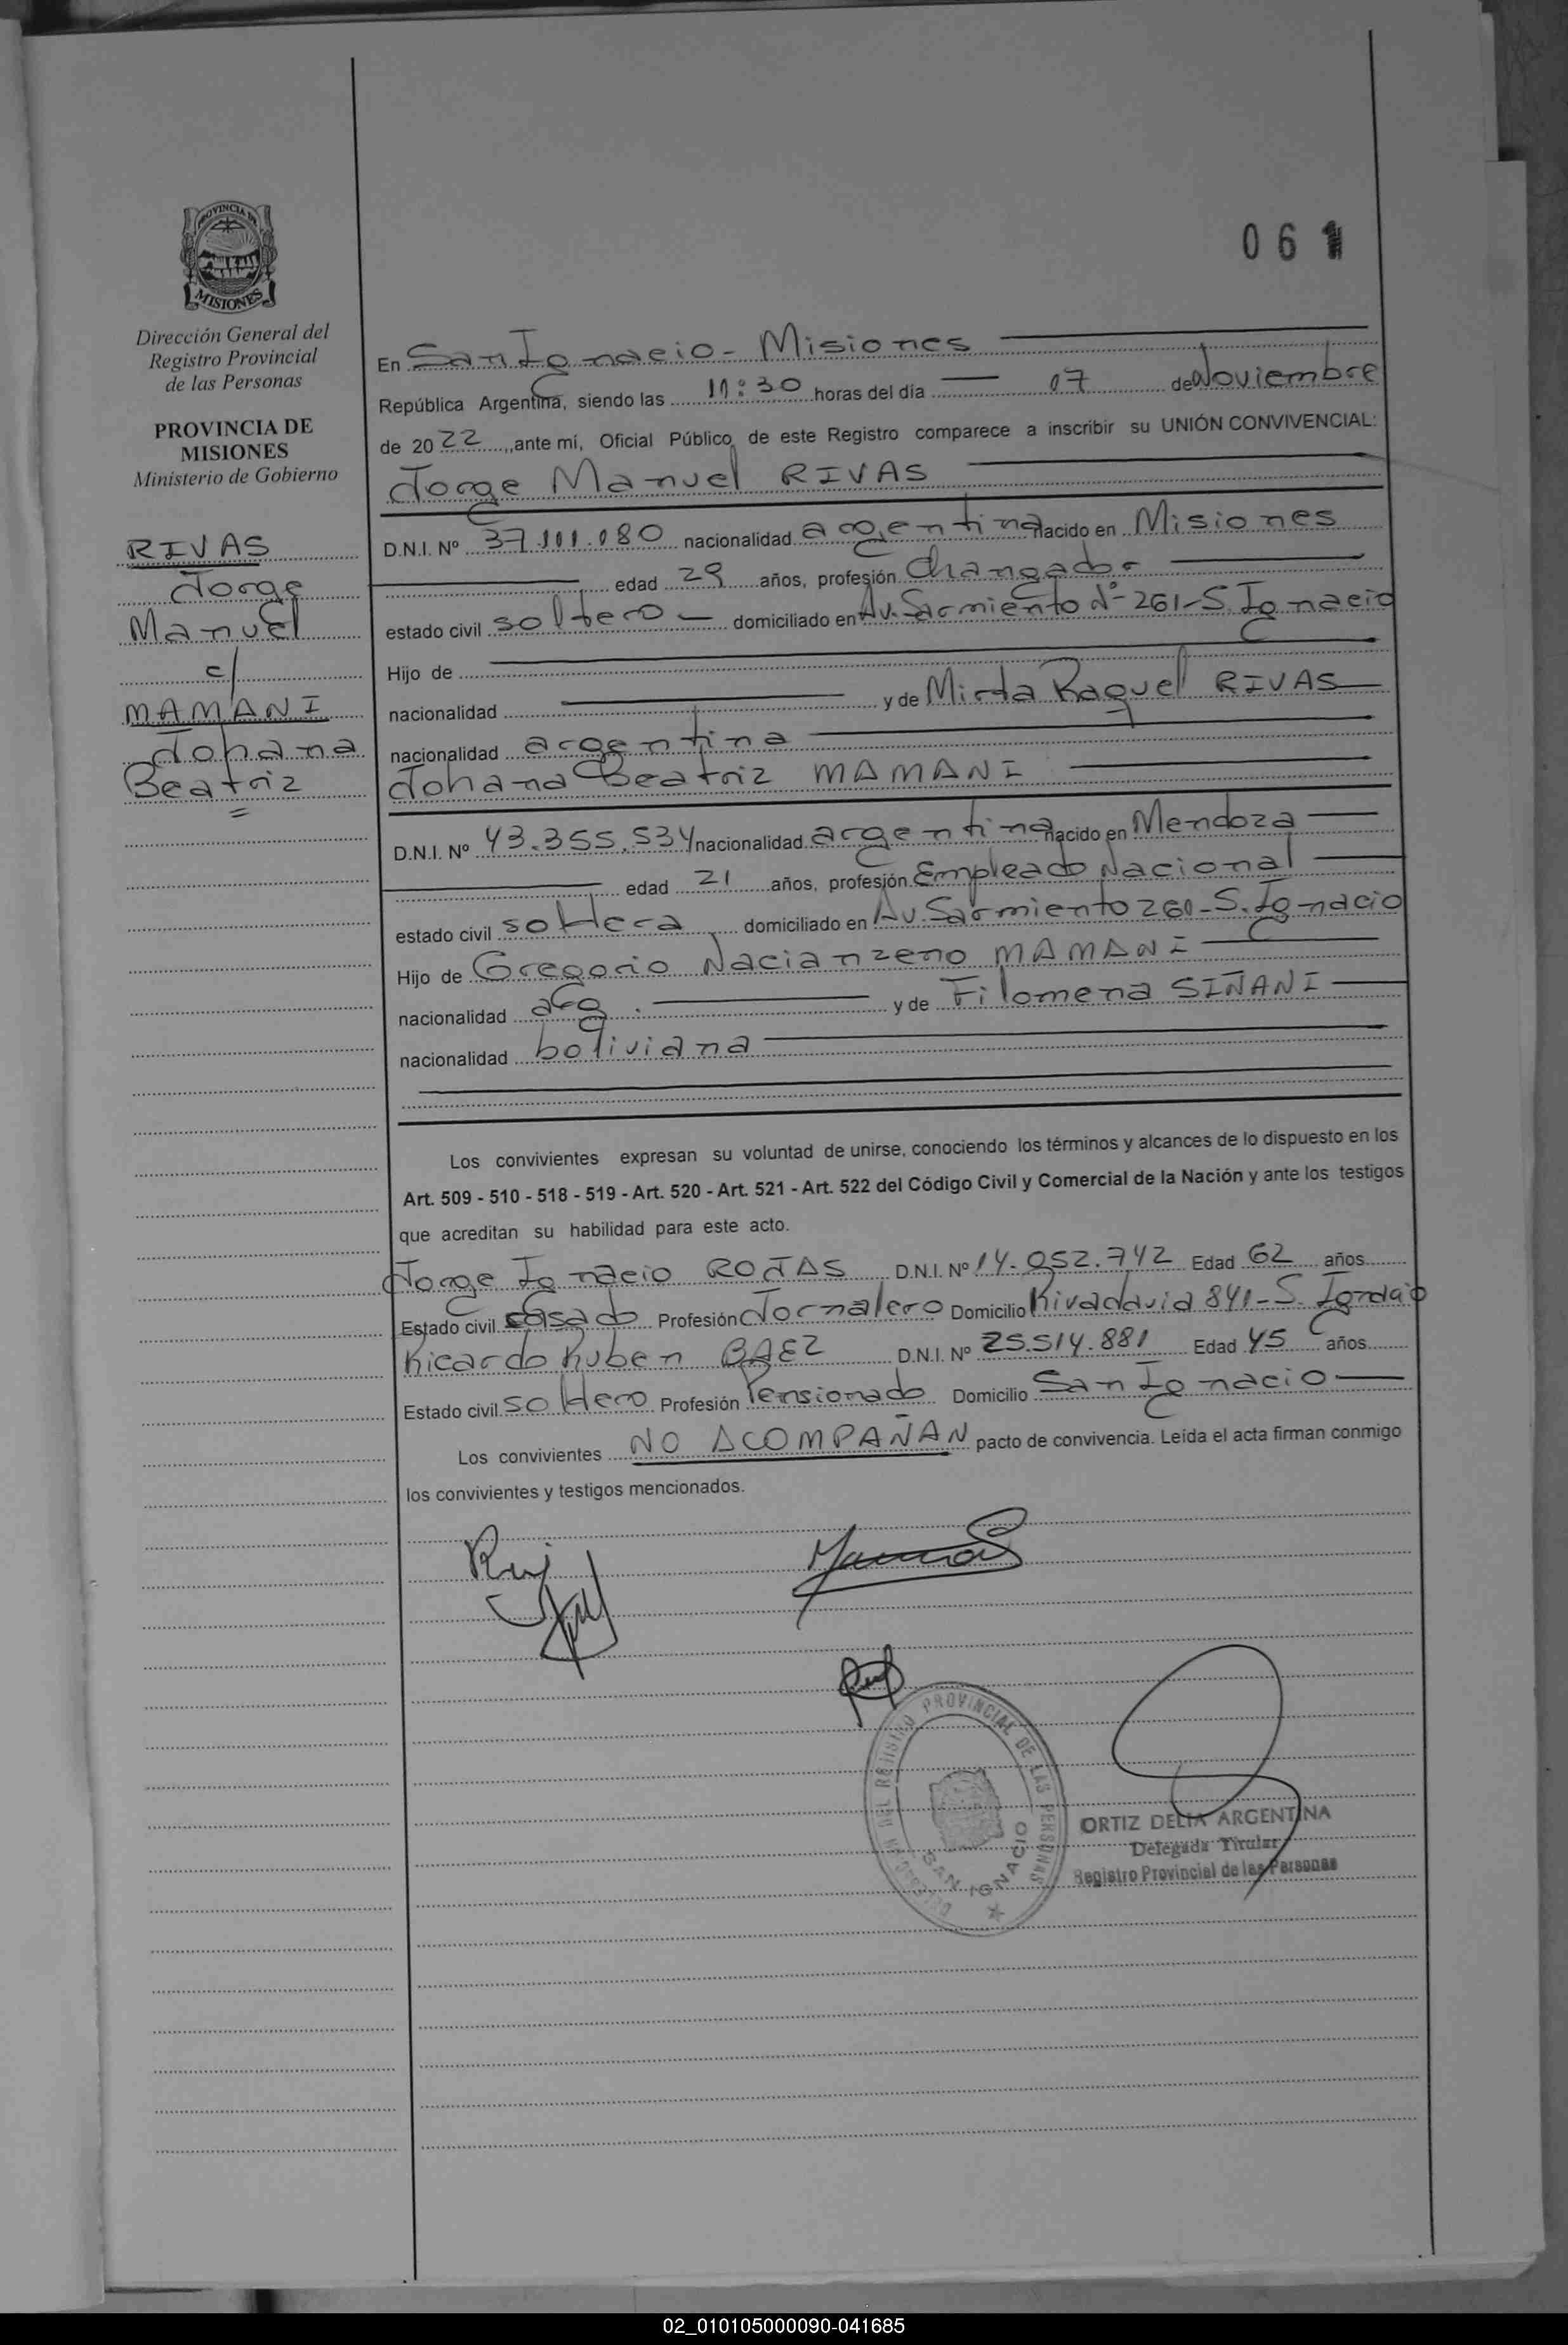 PROVINCIA DE
MISIONES
Dirección General del
Registro Provincial
de las Personas
PROVINCIA DE
MISIONES
Ministerio de Gobierno
RIVAS
Jorge
Manuel
c/
MAMANI
Johana
Beatriz
061
En San Ignacio - Misiones
República Argentina, siendo las 11:30 horas del día 07 de Noviembre
de 2022, ante mí, Oficial Público de este Registro comparece a inscribir su UNIÓN CONVIVENCIAL:
Jorge Manuel RIVAS
D.N.I. Nº 37.101.080 nacionalidad argentina nacido en Misiones
edad 29 años, profesión Changador
estado civil soltero domiciliado en Av. Sarmiento Nº 261-S. Ignacio
Hijo de
nacionalidad y de Mirta Raquel RIVAS
nacionalidad argentina
Johana Beatriz MAMANI
D.N.I. Nº 43.355.534 nacionalidad argentina nacido en Mendoza
edad 21 años, profesión Empleado Nacional
estado civil soltera domiciliado en Av. Sarmiento 260-S. Ignacio
Hijo de Gregorio Nacianzeno MAMANI
nacionalidad arg. y de Filomena SIÑANI
nacionalidad boliviana
Los convivientes expresan su voluntad de unirse, conociendo los términos y alcances de lo dispuesto en los
Art. 509 - 510 - 518 - 519 - Art. 520 - Art. 521 - Art. 522 del Código Civil y Comercial de la Nación y ante los testigos
que acreditan su habilidad para este acto.
Jorge Ignacio ROJAS D.N.I. Nº 14.052.742 Edad 62 años
Estado civil casado Profesión Jornalero Domicilio Rivadavia 841-S. Ignacio
Ricardo Ruben BAEZ D.N.I. Nº 25.514.881 Edad 45 años
Estado civil soltero Profesión Pensionado Domicilio San Ignacio
Los convivientes NO ACOMPAÑAN pacto de convivencia. Leída el acta firman conmigo
los convivientes y testigos mencionados.
REGISTRO PROVINCIAL DE LAS PERSONAS
SAN IGNACIO
ORTIZ DELIA ARGENTINA
Delegada Titular
Registro Provincial de las Personas
02_010105000090-041685